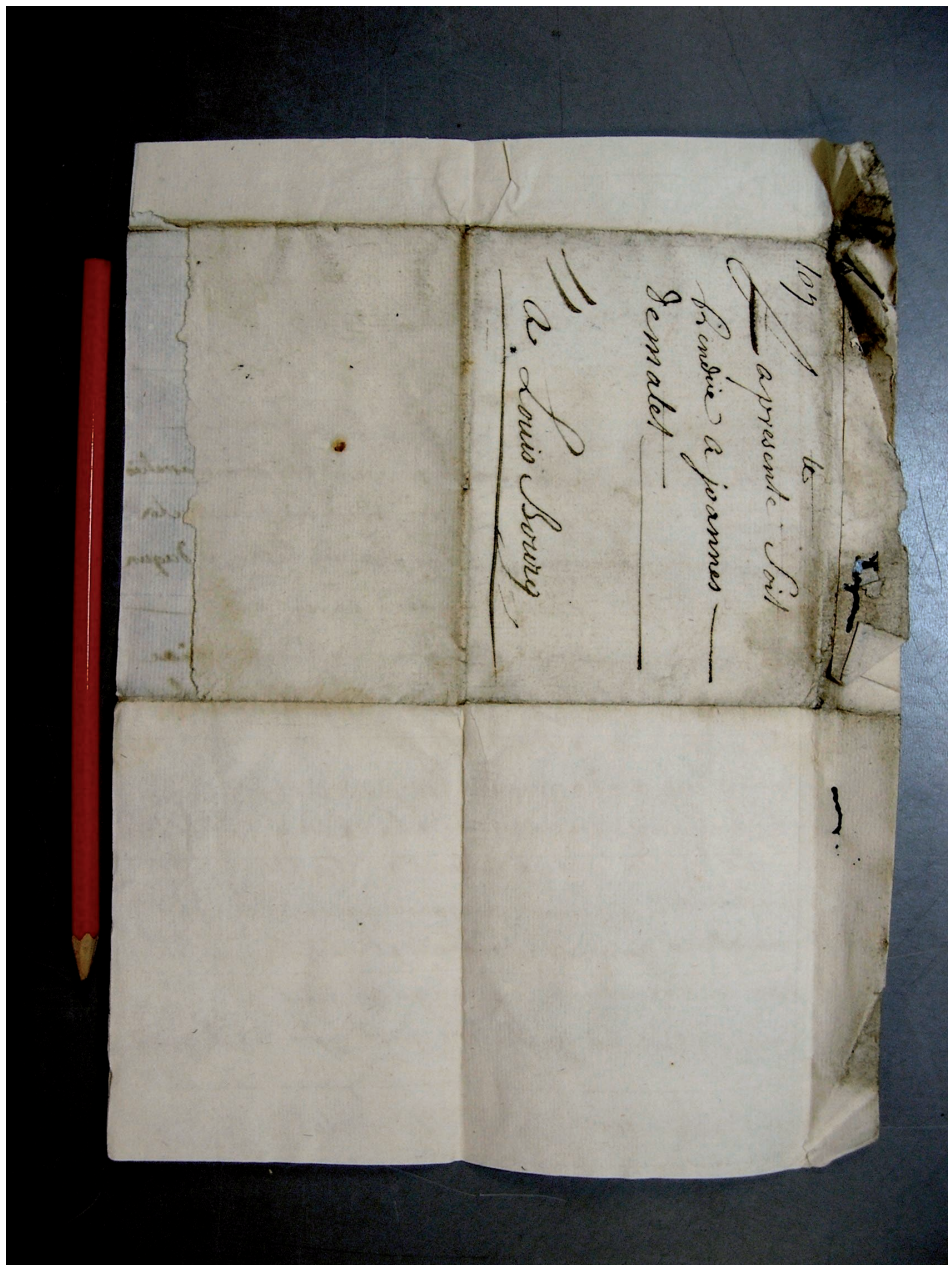 109
te
La presente Soit
Rendue a joannes
Dematet
a Louis Bourg